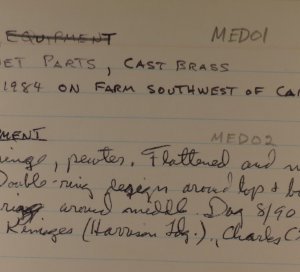 EQUIPMENT MED01
ET PARTS, CAST BRASS
1984 ON FARM SOUTHWEST OF CA
MENT MED02
inge, pewter. Flattened and
Double-ring design around top &
ring around middle. Dug 8/90
Kimiges (Harrison Ldg.)., Charles C